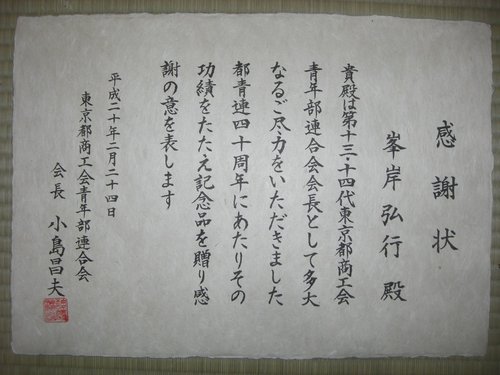 感謝状
峯岸弘行殿
貴殿は第十三・十四代東京都商工会
青年部連合会会長として多大
なるご尽力をいただきました
都青連四十周年にあたりその
功績をたたえ記念品を贈り感
謝の意を表します
平成二十年二月二十四日
東京都商工会青年部連合会
会長 小島昌夫